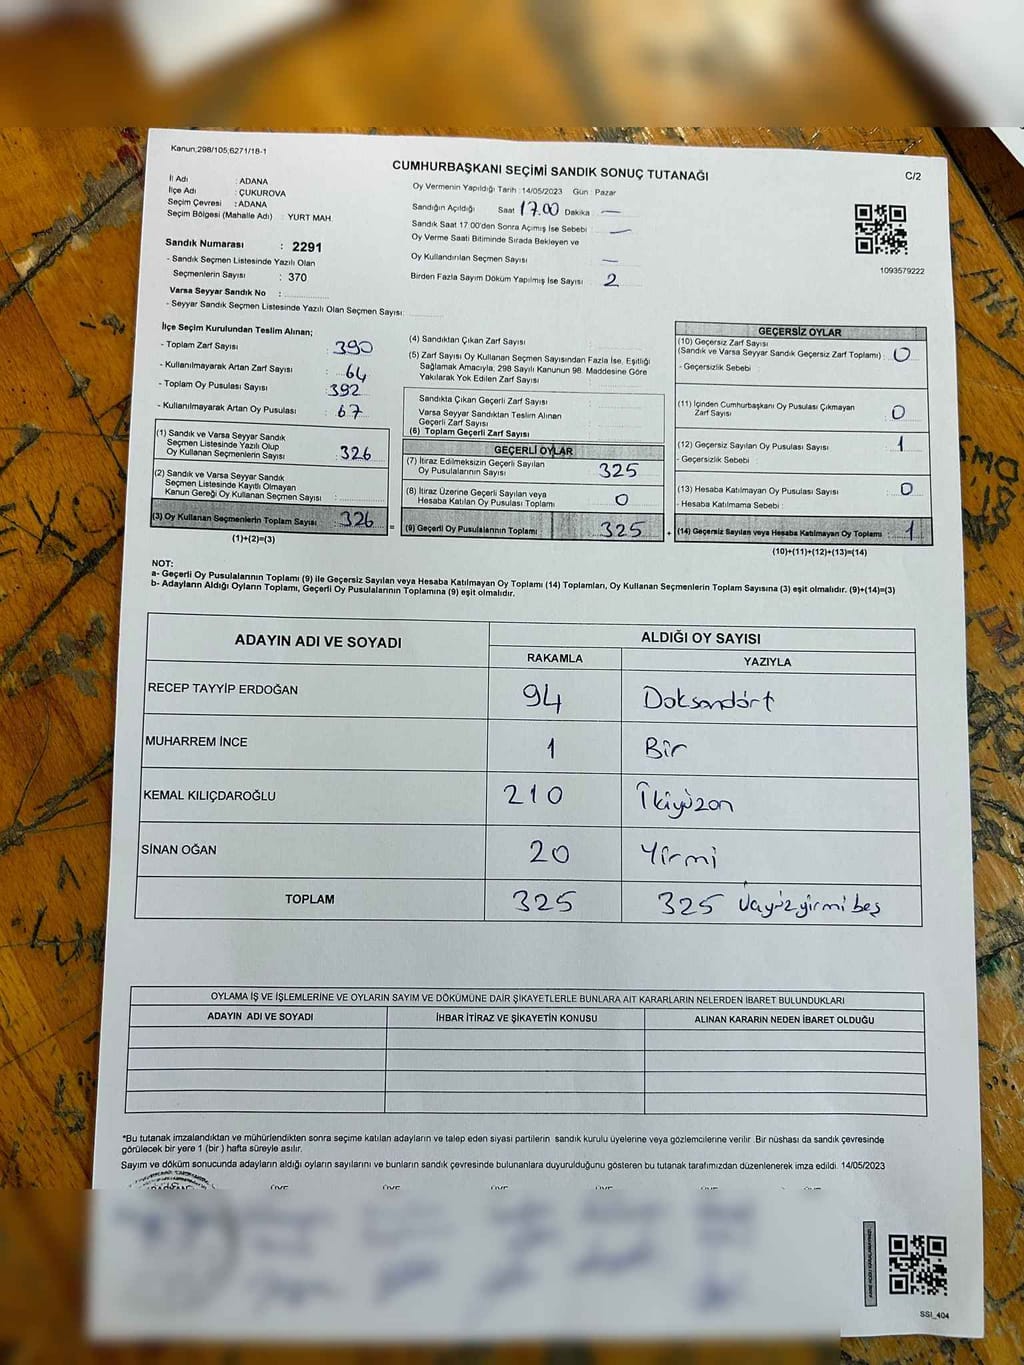 Kanun;298/105;6271/18-1
CUMHURBAŞKANI SEÇİMİ SANDIK SONUÇ TUTANAĞI
C/2
İl Adı : ADANA
İlçe Adı : ÇUKUROVA
Seçim Çevresi : ADANA
Seçim Bölgesi (Mahalle Adı) : YURT MAH.
Sandık Numarası : 2291
- Sandık Seçmen Listesinde Yazılı Olan
Seçmenlerin Sayısı : 370
Varsa Seyyar Sandık No :
- Seyyar Sandık Seçmen Listesinde Yazılı Olan Seçmen Sayısı:
Oy Vermenin Yapıldığı Tarih : 14/05/2023 Gün : Pazar
Sandığın Açıldığı Saat 17.00 Dakika —
Sandık Saat 17.00'den Sonra Açımış İse Sebebi : —
Oy Verme Saati Bitiminde Sırada Bekleyen ve
Oy Kullandırılan Seçmen Sayısı —
Birden Fazla Sayım Döküm Yapılmış İse Sayısı : 2
1093579222
İlçe Seçim Kurulundan Teslim Alınan;
- Toplam Zarf Sayısı : 390
- Kullanılmayarak Artan Zarf Sayısı : 64
- Toplam Oy Pusulası Sayısı : 392
- Kullanılmayarak Artan Oy Pusulası : 67
(1) Sandık ve Varsa Seyyar Sandık
Seçmen Listesinde Yazılı Olup
Oy Kullanan Seçmenlerin Sayısı : 326
(2) Sandık ve Varsa Seyyar Sandık
Seçmen Listesinde Kayıtlı Olmayan
Kanun Gereği Oy Kullanan Seçmen Sayısı :
(3) Oy Kullanan Seçmenlerin Toplam Sayısı : 326
(1)+(2)=(3)
=
(4) Sandıktan Çıkan Zarf Sayısı :
(5) Zarf Sayısı Oy Kullanan Seçmen Sayısından Fazla İse, Eşitliği
Sağlamak Amacıyla, 298 Sayılı Kanunun 98. Maddesine Göre
Yakılarak Yok Edilen Zarf Sayısı :
Sandıkta Çıkan Geçerli Zarf Sayısı :
Varsa Seyyar Sandıktan Teslim Alınan
Geçerli Zarf Sayısı :
(6) Toplam Geçerli Zarf Sayısı :
GEÇERLİ OYLAR
(7) İtiraz Edilmeksizin Geçerli Sayılan
Oy Pusulalarının Sayısı : 325
(8) İtiraz Üzerine Geçerli Sayılan veya
Hesaba Katılan Oy Pusulası Toplamı : 0
(9) Geçerli Oy Pusulalarının Toplamı : 325
+
GEÇERSİZ OYLAR
(10) Geçersiz Zarf Sayısı
(Sandık ve Varsa Seyyar Sandık Geçersiz Zarf Toplamı) : 0
- Geçersizlik Sebebi :
(11) İçinden Cumhurbaşkanı Oy Pusulası Çıkmayan
Zarf Sayısı : 0
(12) Geçersiz Sayılan Oy Pusulası Sayısı : 1
- Geçersizlik Sebebi :
(13) Hesaba Katılmayan Oy Pusulası Sayısı : 0
- Hesaba Katılmama Sebebi :
(14) Geçersiz Sayılan veya Hesaba Katılmayan Oy Toplamı : 1
(10)+(11)+(12)+(13)=(14)
NOT:
a- Geçerli Oy Pusulalarının Toplamı (9) ile Geçersiz Sayılan veya Hesaba Katılmayan Oy Toplamı (14) Toplamları, Oy Kullanan Seçmenlerin Toplam Sayısına (3) eşit olmalıdır. (9)+(14)=(3)
b- Adayların Aldığı Oyların Toplamı, Geçerli Oy Pusulalarının Toplamına (9) eşit olmalıdır.
ADAYIN ADI VE SOYADI ALDIĞI OY SAYISI
RAKAMLA YAZIYLA
RECEP TAYYİP ERDOĞAN 94 Doksandört
MUHARREM İNCE 1 Bir
KEMAL KILIÇDAROĞLU 210 İkiyüzon
SİNAN OĞAN 20 Yirmi
TOPLAM 325 325 üçyüzyirmi beş
OYLAMA İŞ VE İŞLEMLERİNE VE OYLARIN SAYIM VE DÖKÜMÜNE DAİR ŞİKAYETLERLE BUNLARA AİT KARARLARIN NELERDEN İBARET BULUNDUKLARI
ADAYIN ADI VE SOYADI İHBAR İTİRAZ VE ŞİKAYETİN KONUSU ALINAN KARARIN NEDEN İBARET OLDUĞU
*Bu tutanak imzalandıktan ve mühürlendikten sonra seçime katılan adayların ve talep eden siyasi partilerin sandık kurulu üyelerine veya gözlemcilerine verilir .Bir nüshası da sandık çevresinde
görülecek bir yere 1 (bir ) hafta süreyle asılır.
Sayım ve döküm sonucunda adayların aldığı oyların sayılarını ve bunların sandık çevresinde bulunanlara duyurulduğunu gösteren bu tutanak tarafımızdan düzenlenerek imza edildi. 14/05/2023
ÜYE ÜYE ÜYE ÜYE ÜYE ÜYE
SSI_404